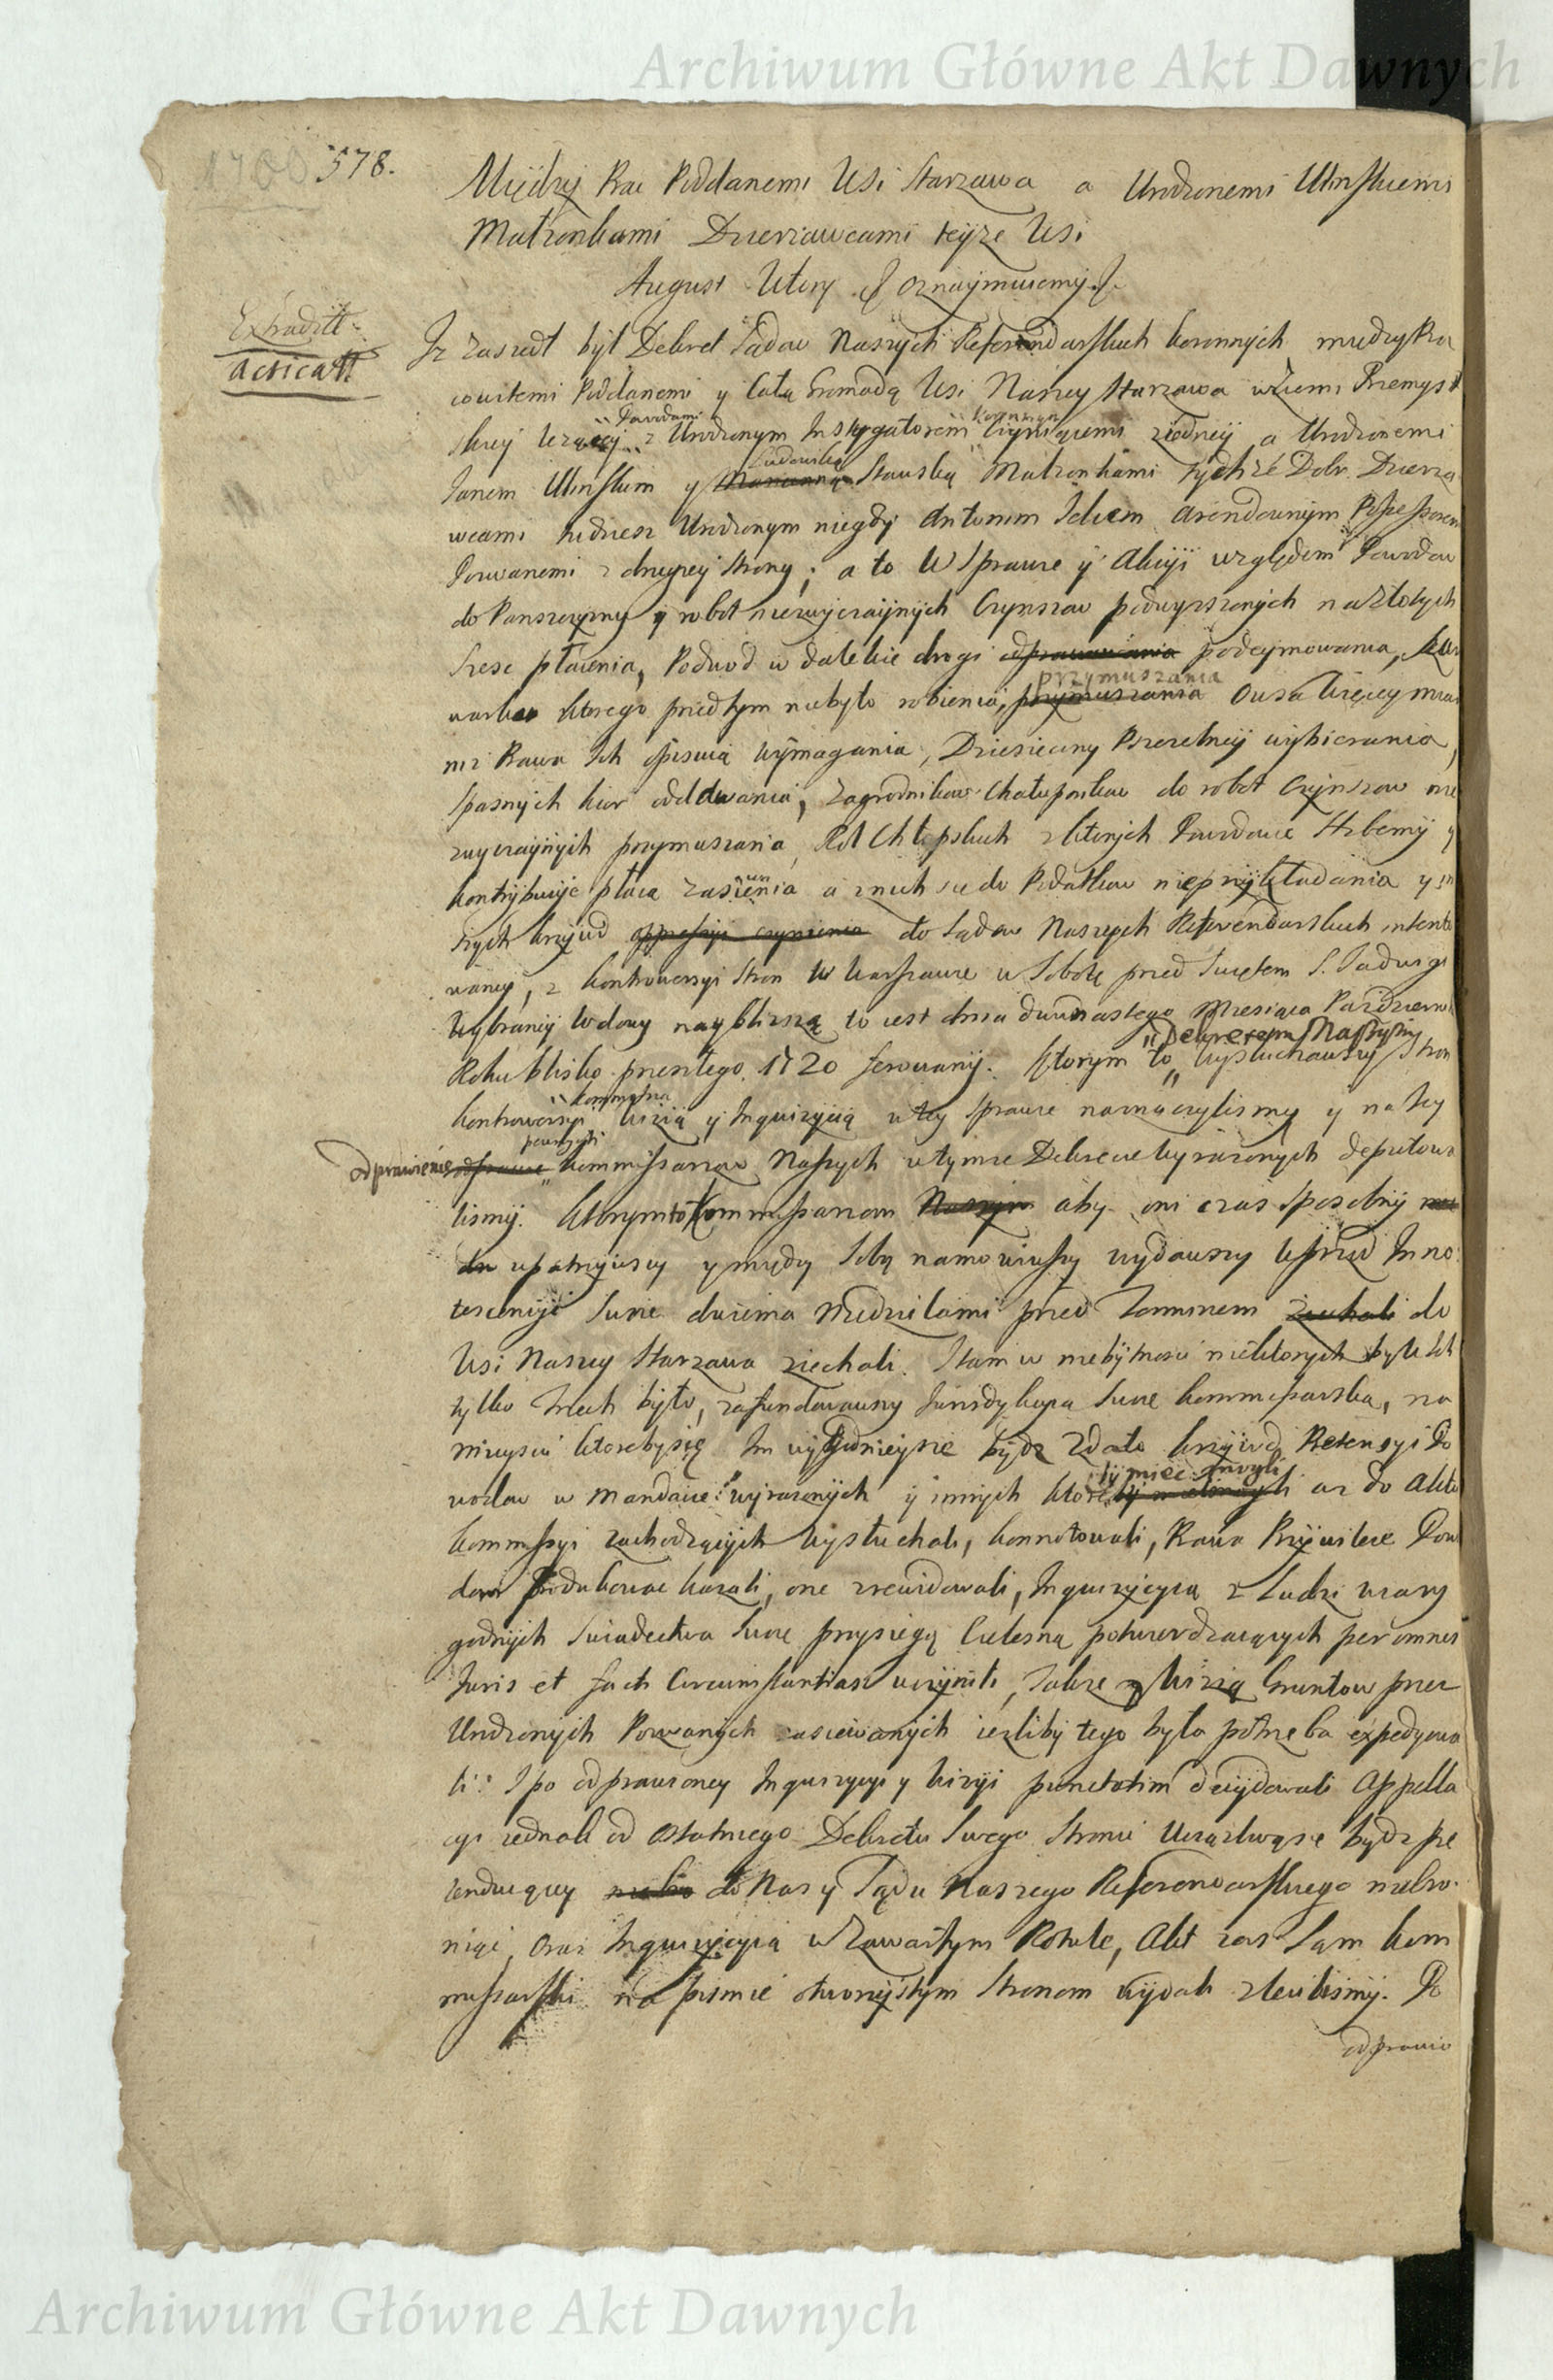 Archiwum Główne Akt Dawnych
1700 578.
Między Prac Poddanemi Wsi Starzawa a Urodzonemi Ulinskiemi
Małzonkami Dzierzawcami teyze Wsi
August Wtory oznaymuiemy
Extradit:
Acticatt
Iz zaszedł był Dekret Sądow Naszych Referendarskich koronnych między Pra
cowitemi Poddanemi y Całą Gromadą Wsi Naszey Starzawa w Ziemi Przemys
skiey lezącey Powodami z Urodzonym Instygatorem Koronnym Czyniącemi z iedney a Urodzonemi
Janem Ulinskim y Marianną Ludowiką Stauską Małzonkami tychze Dobr Dzierza
wcami tudziesz Urodzonym niegdy Antonim arendownym Possessorem
Pozwanemi z drugiey strony; a to W Sprawie y Akcyi względem Powodow
do Panszczyzny y robot niezwyczaynych Czynszow podwyzszonych na złotych
szesc płacenia, Podwod w dalekie drogi odprawowania podeymowania,
ktorego przedtym niebyło robienia, przymuszania przymuszania Owsa więcey miar
niz Prawa Ich opisuią wymagania, Dziesięciny Pszczelney wybierania,
spasnych kur oddawania, Zagrodnikow Chałupnikow do robot Czynszow nie
zwyczaynych przymuszania, Rol Chłopskich z ktorych Powodowie Hiberny y
kontrybucye płacą zasiewania a z nich się do Podatkow nieprzykładania y in
szych krzywd oppressyi czynienia do Sądow Naszych Referendarskich intento
waney, z kontrowersyi Stron W Warszawie w Sobotę przed Swiętem S. Jadwigi
Wybraney Wdowy naybliszą to iest dnia dwunastego Miesiąca Pazdzierni
Roku blisko przeszłego 1720 ferowany. Ktorym to Dekretem Naszym wysłuchawszy Stron
kontrowersyi wizią y Inquizycią w tey sprawie naznaczylismy y na tey
odprawienie kommissarzow Naszych w tymze Dekrecie wyrazonych deputowa
lismy. Ktorymto Kommissarzom Naszym aby oni czas sposobny
upatrzywszy y między sobą namowiwszy wydawszy wprzod Inno
tescencyi Swoie dwiema Niedzielami przed Terminem ziechali do
Wsi Naszey Starzawa ziechali. I tam w niebytnosci niektorych byle Ich
tylko trzech było, zafundowawszy Jurisdykcyą Swoię kommissarską, na
mieyscu ktoreby się Im wygodnieysze bydz zdało krzywd Pretensyi Po
wodow w Mandacie wyrazonych y innych ktore by mieć mogli az do Aktu
kommissyi zachodzących wysłuchali, konnotowali, Prawa Przywileie Powo
dom produkowac kazali, one zrewidowali, Inquizycyią z Ludzi wiary
godnych Swiadectwa Swoie przysięgą Cielesną potwierdzaiących per omnes
Juris et facti Circumstantias uczynili, Takze wizią Gruntow przez
Urodzonych Pozwanych zasiewanych iezliby tego była potrzeba expedyowa
li: I po odprawioney Inquizycyi y wizyi punctatim decydowali Appella
cyi iednak od ostatniego Dekretu Swego Stronie Uciązliwą się bydz pre
tenduiącey do Nas y Sądu Naszego Referendarskiego niebro
niąc, oraz Inquizycyią w Zawartym Rotule, Akt zas Sam kom
missarski na pismie otworzystym Stronom wydali zlecilismy. Po
odprawio
Archiwum Główne Akt Dawnych